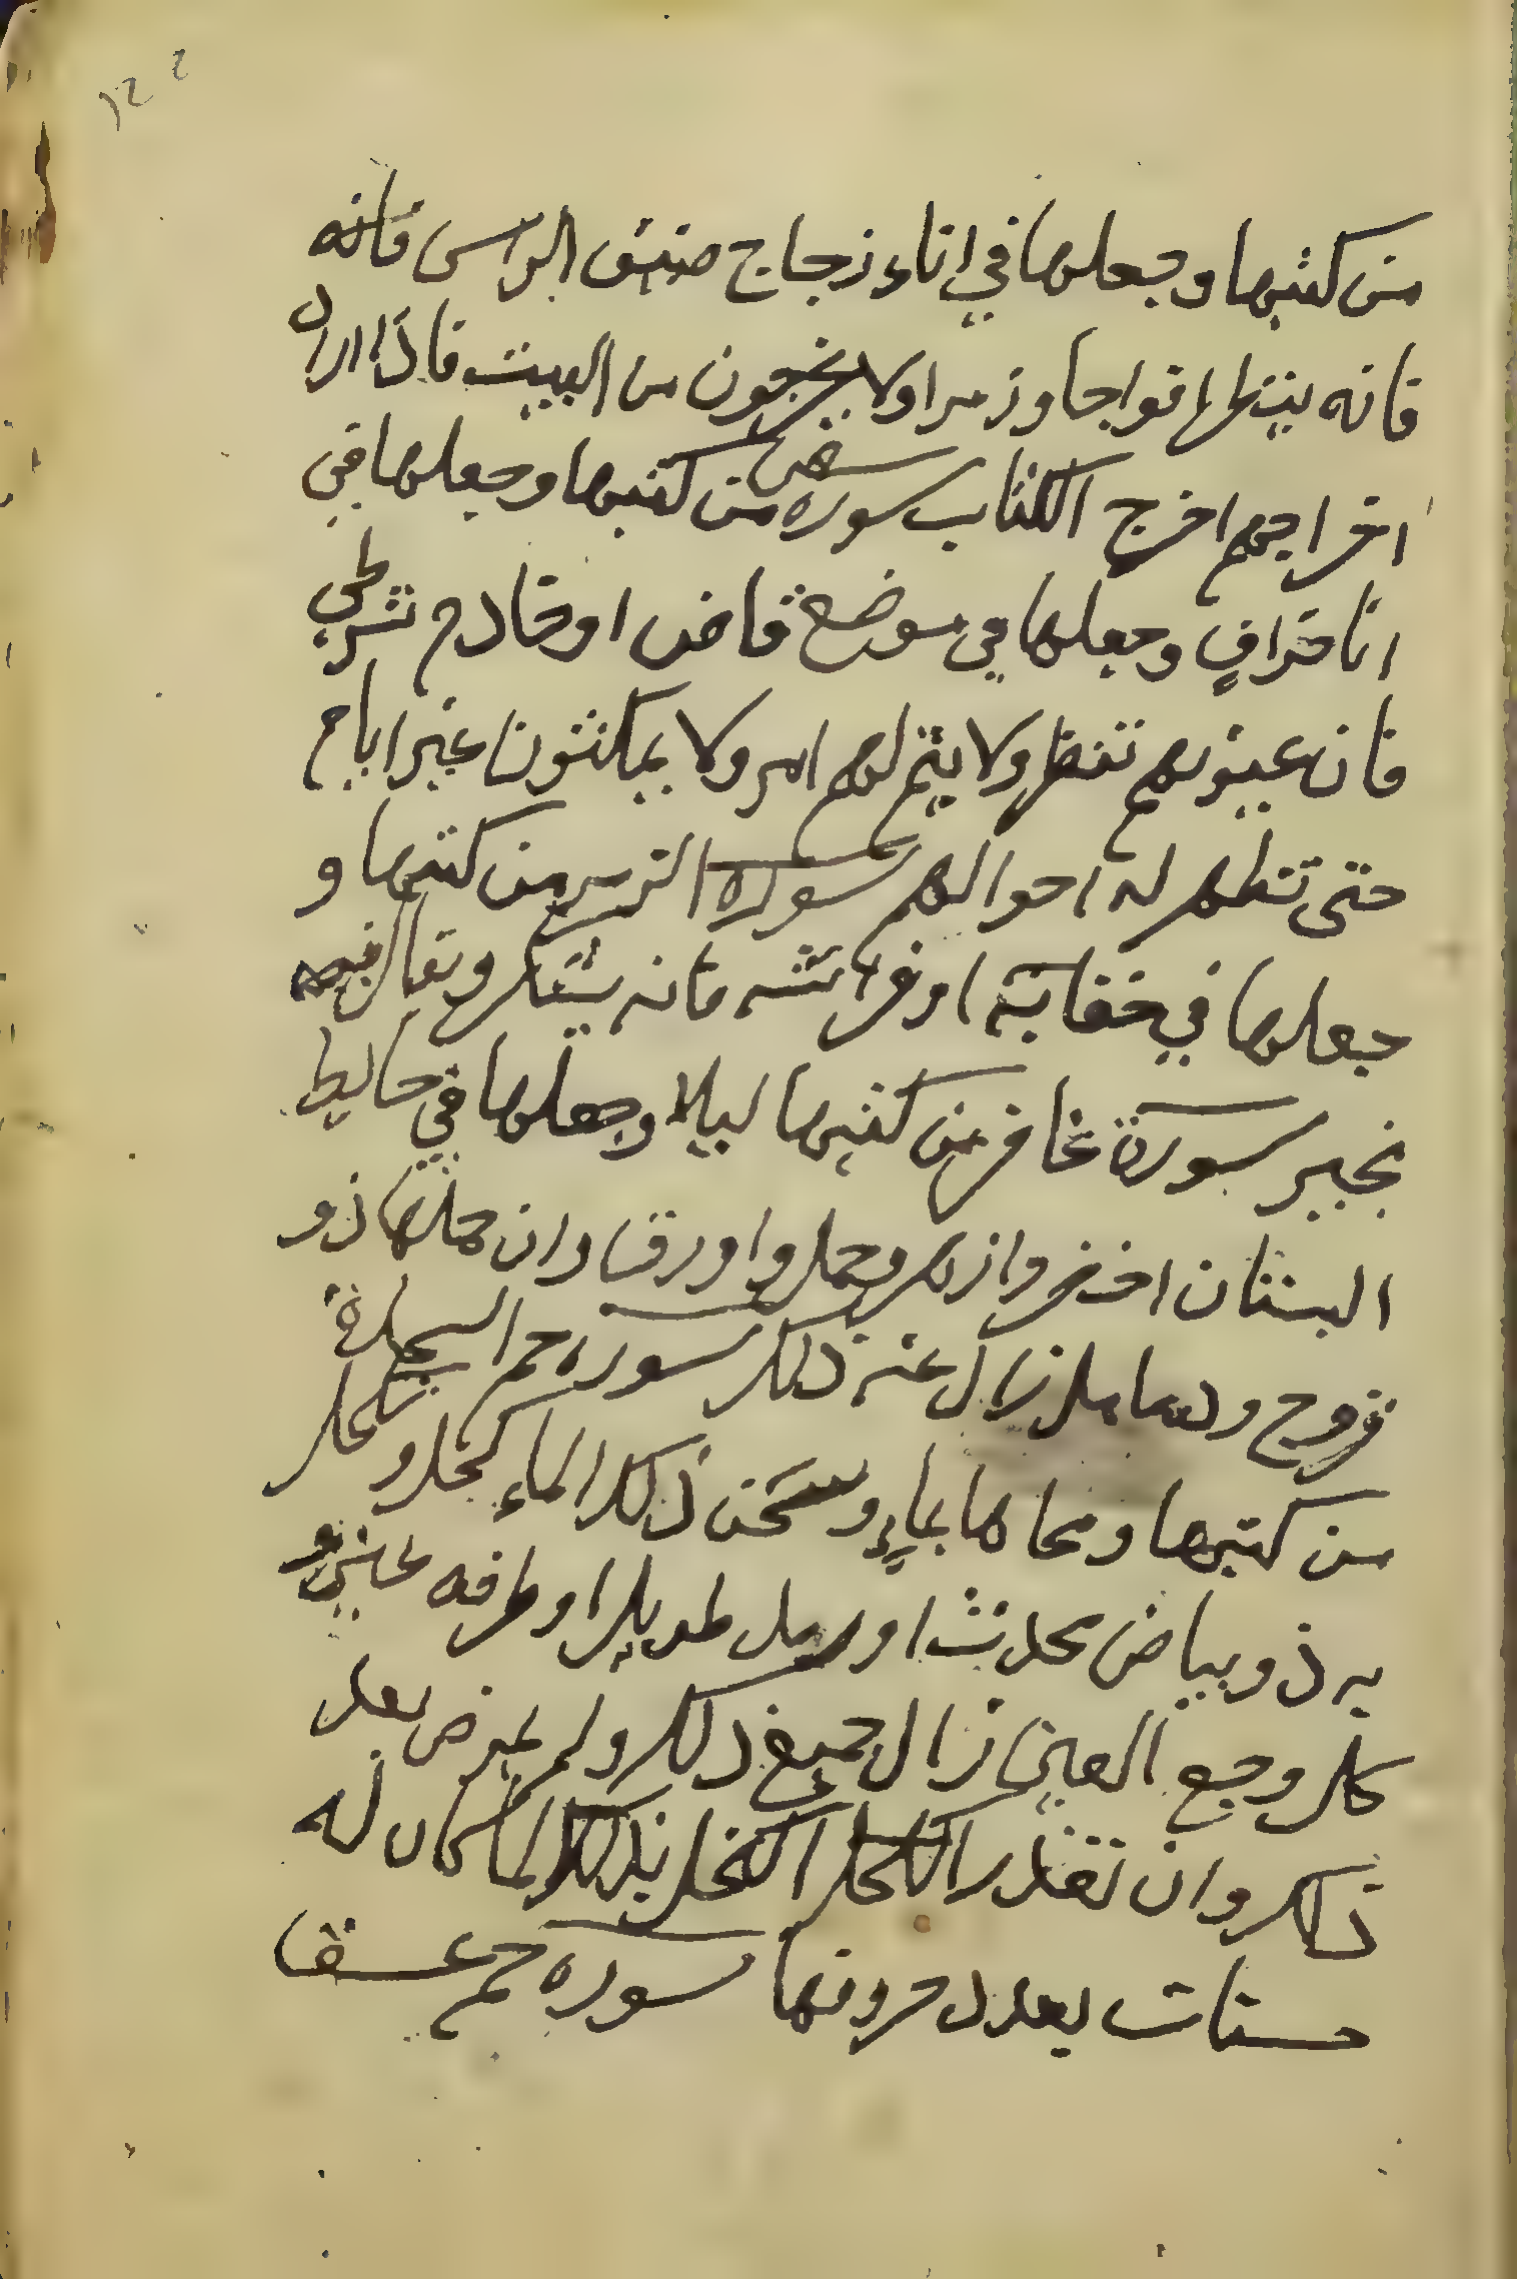 من كتبها وجعلها في اناء زجاج ضيق الراس فانه
فانه ينتظرها فواجا وزمرا ولا يخرجون من البيت فاذا اراد
اخراجهم اخرج الكتاب سورة ص من كتبها وجعلها في
انا خزاف وجعلها في موضع قاض او خادم شرطي
فان عيوبهم تنظر ولا يتم لهم امر ولا يمكثون غير اياح
حتى تظهر له احوالهم سورة الزمر من كتبها و
جعلها في خفاية او فراشه فانه يشكر ويقال فيه
بخير سورة غافر من كتبها ليلا وجعلها في حايط
البستان اخضر وازهر وحمل واورق وان حملها ذو
قروح ودمامل زال عنه ذلك سورة حم السجدة
من كتبها ومحاها بماء وسحق ذلك الماء كحل وكحل
به ذو بياض محدث او رمل طويل او طرفه عين و
كل وجع العين زال جميع ذلك ولم يمرض بعد
ذلك وان تعذر الكحل اكتحل بذلك الماء كان له
حسنات بعدد حروفها سورة حم عسق